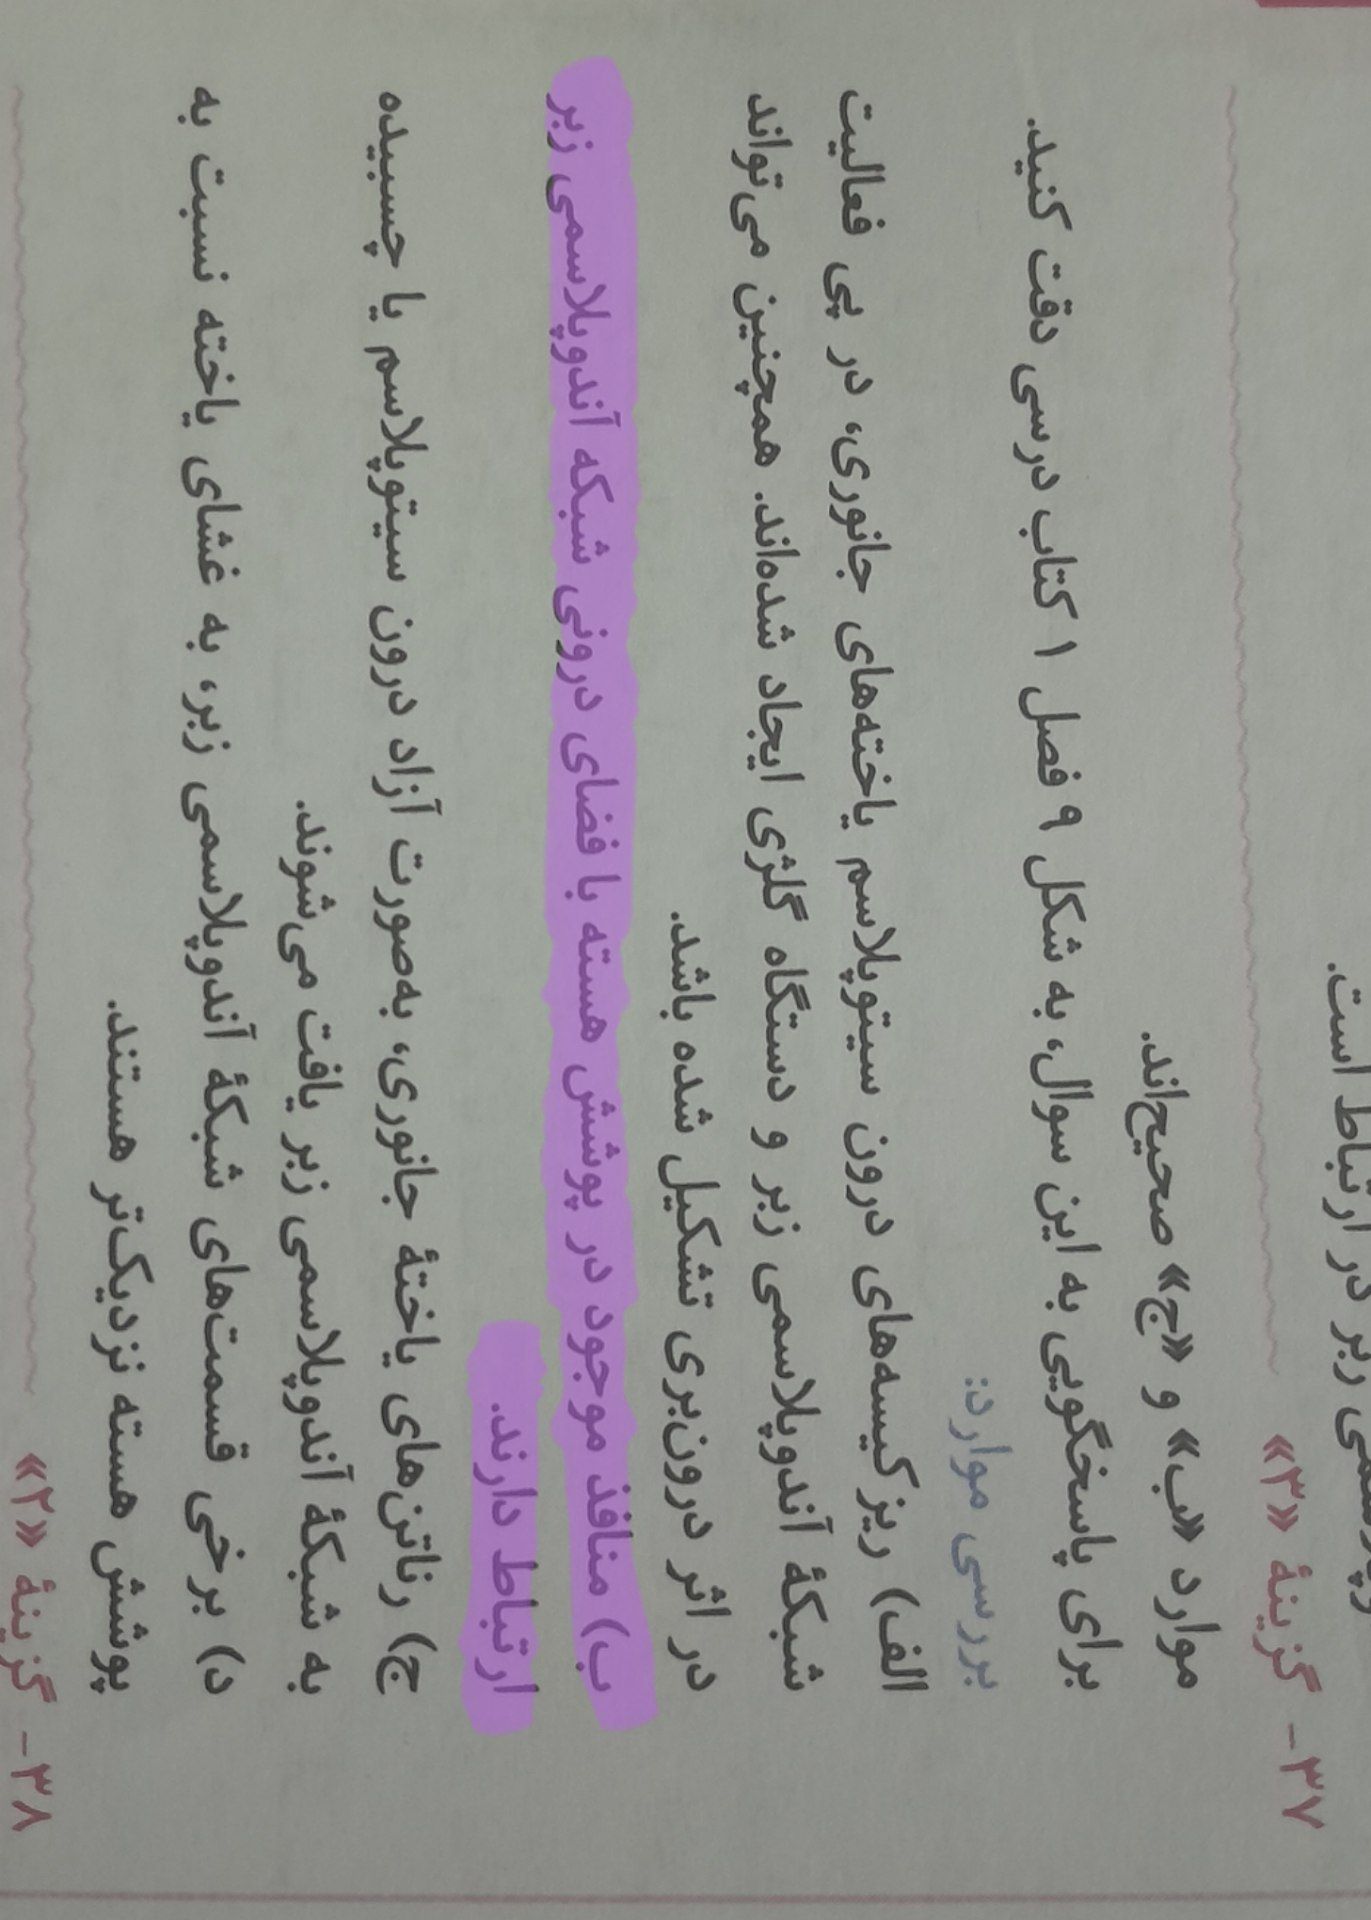 در ارتباط است.
۳۷- گزینهٔ «۳»
موارد «ب» و «ج» صحیح‌اند.
برای پاسخگویی به این سوال، به شکل ۹ فصل ۱ کتاب درسی دقت کنید.
بررسی موارد:
الف) ریزکیسه‌های درون سیتوپلاسم یاخته‌های جانوری، در پی فعالیت
شبکهٔ آندوپلاسمی زبر و دستگاه گلژی ایجاد شده‌اند. همچنین می‌تواند
در اثر درون‌بری تشکیل شده باشد.
ب) منافذ موجود در پوشش هسته با فضای درونی شبکه آندوپلاسمی زبر
ارتباط دارند.
ج) رناتن‌های یاختهٔ جانوری، به‌صورت آزاد درون سیتوپلاسم یا چسبیده
به شبکهٔ آندوپلاسمی زبر یافت می‌شوند.
د) برخی قسمت‌های شبکهٔ آندوپلاسمی زبر، به غشای یاخته نسبت به
پوشش هسته نزدیک‌تر هستند.
۳۸- گزینهٔ «۲»